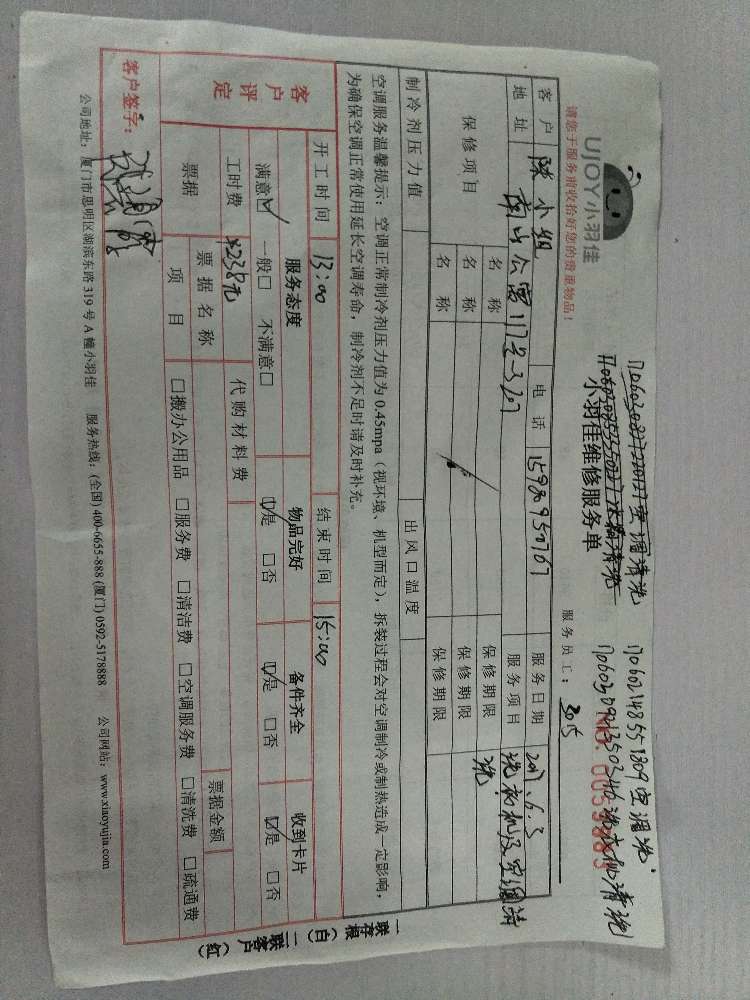 UJOY小羽佳
请您于服务前收拾好您的贵重物品！
小羽佳维修服务单
170602148551309空调洗
服务员工：3015
NO. 0059883
客户 陈小姐 电话 15980950767 服务日期 2017.6.3
地址 南山公寓117号-307 服务项目 洗衣机及空调清洗
保修项目 名称 保修期限
名称 保修期限
名称 保修期限
制冷剂压力值 出风口温度
空调服务温馨提示：空调正常制冷剂压力值为 0.45mpa（视环境、机型而定），拆装过程会对空调制冷或制热造成一定影响，
为确保空调正常使用延长空调寿命，制冷剂不足时请及时补充。
开工时间 13:00 结束时间 15:00
客户评定 服务态度 物品完好 备件齐全 收到卡片
满意☑ 一般□ 不满意□ ☑是 □否 ☑是 □否 ☑是 □否
工时费 ¥238元 代购材料费
票据 票据名称 票据金额
项目 □搬办公用品 □服务费 □清洁费 □空调服务费 □清洗费 □疏通费
客户签字：
公司地址：厦门市思明区湖滨东路 319 号 A 幢小羽佳 服务热线：(全国) 400-6655-888 (厦门) 0592-5178888 公司网站：www.xiaoyujia.com
一联存根（白） 二联客户（红）